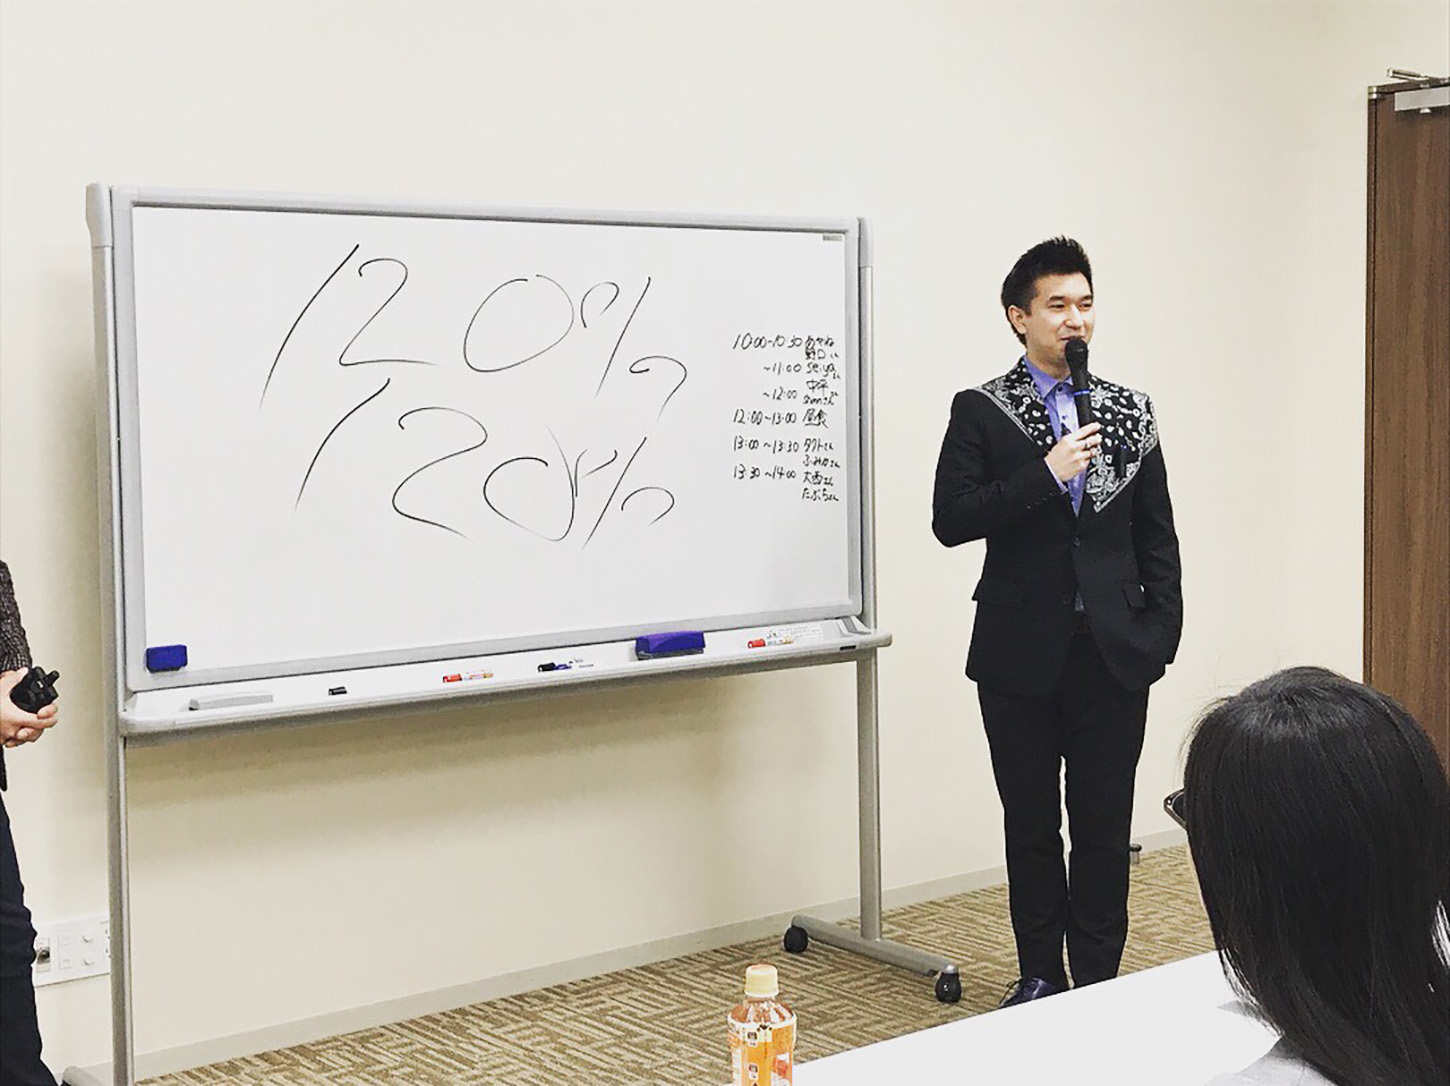 120%
120%
10:00~10:30 あやね
野口さん
~11:00 Seiya
中平
~12:00
12:00~13:00 昼食
13:00~13:30 タクトさん
ふみかさん
13:30~14:00 大西さん
たぶちさん